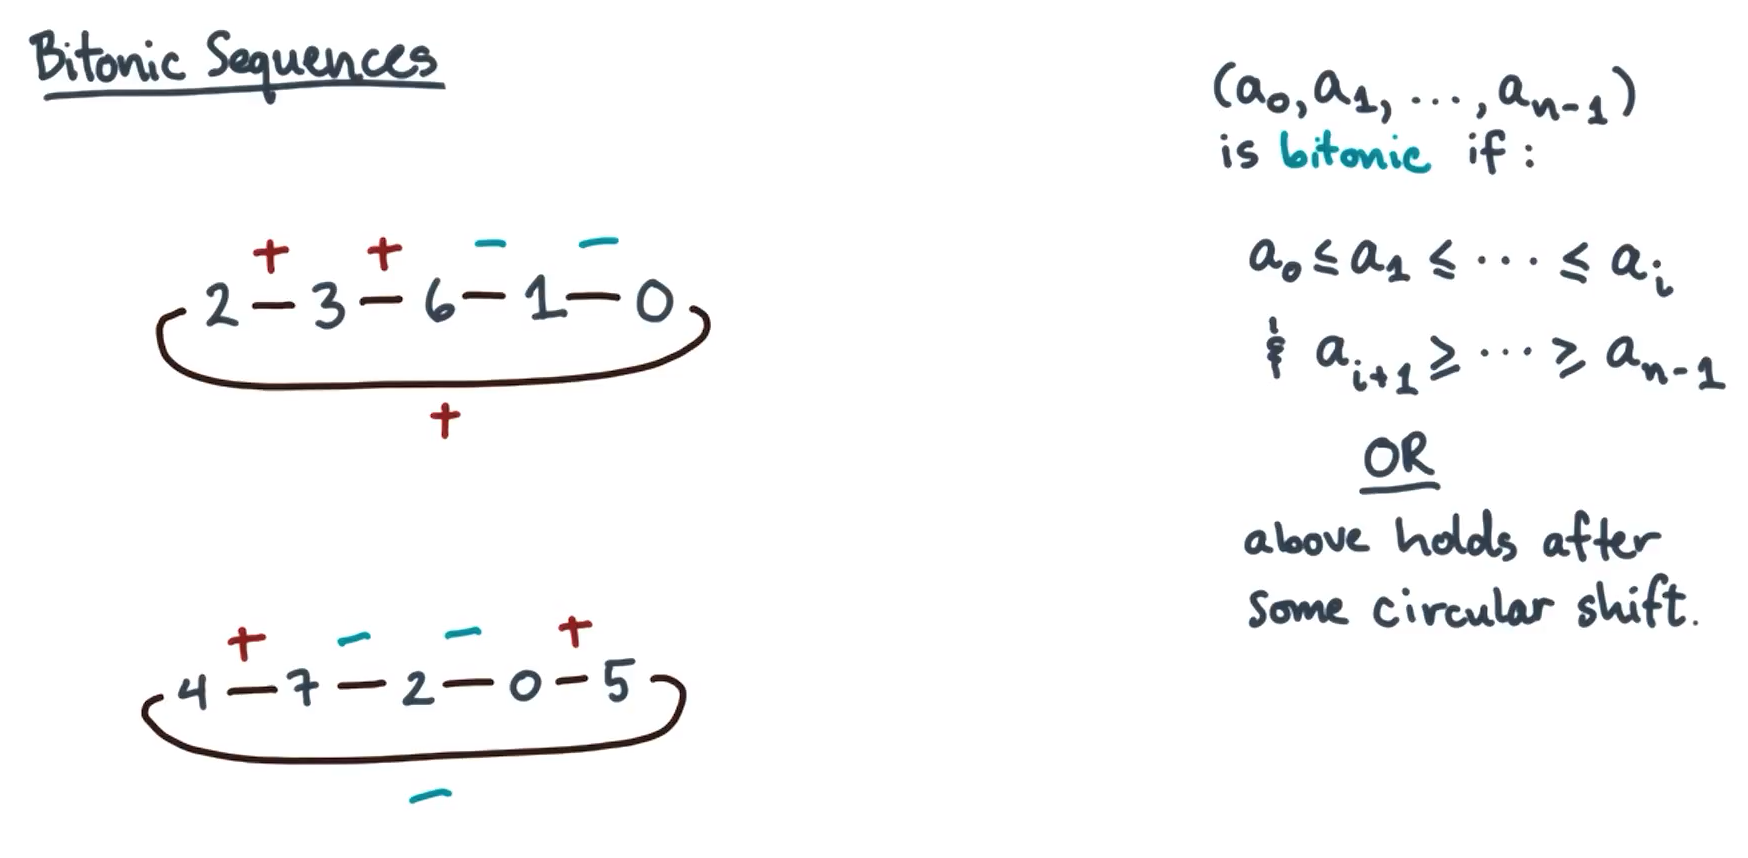 Bitonic Sequences
+ + - -
2 - 3 - 6 - 1 - 0
+
+ - - +
4 - 7 - 2 - 0 - 5
-
(a₀, a₁, ..., aₙ₋₁)
is bitonic if :
a₀ ≤ a₁ ≤ ... ≤ aᵢ
& aᵢ₊₁ ≥ ... ≥ aₙ₋₁
OR
above holds after
some circular shift.